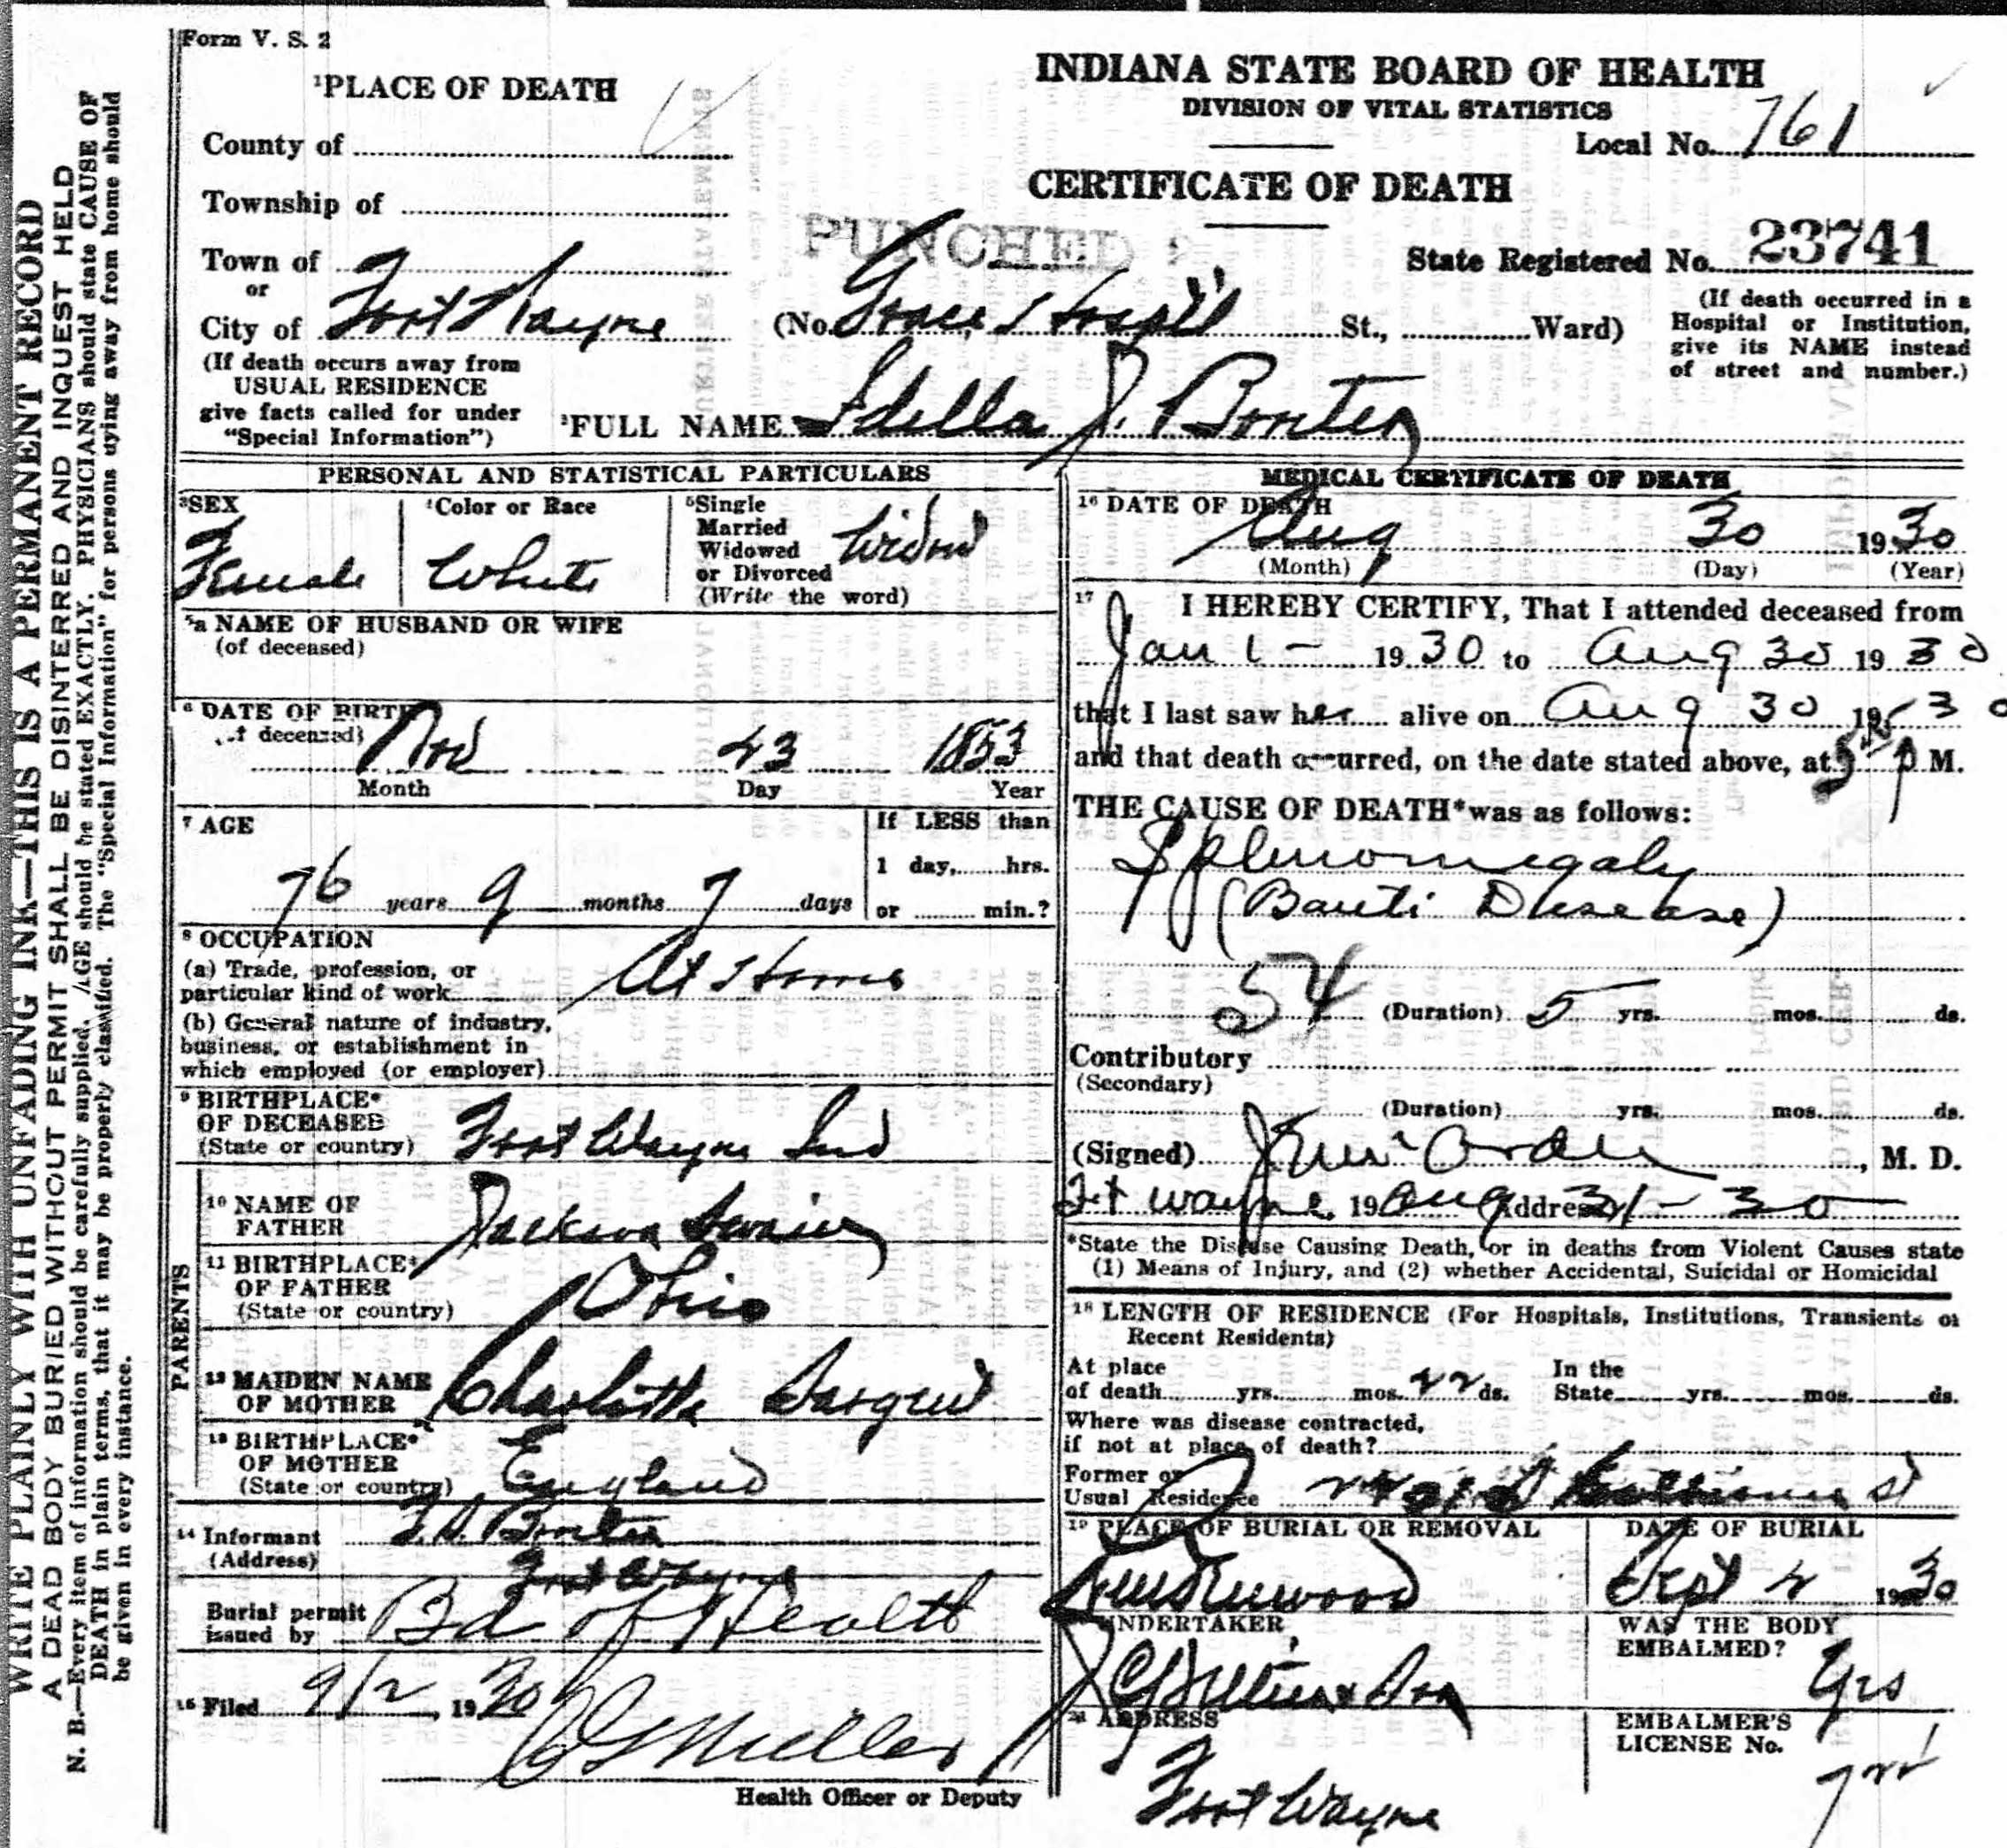 Form V. S. 2
INDIANA STATE BOARD OF HEALTH
DIVISION OF VITAL STATISTICS
Local No. 761
CERTIFICATE OF DEATH
PUNCHED
State Registered No. 23741
(If death occurred in a
Hospital or Institution,
give its NAME instead
of street and number.)
1 PLACE OF DEATH
County of
Township of
Town of
or
City of Fort Wayne (No. Grace Hosp'l St., Ward)
(If death occurs away from
USUAL RESIDENCE
give facts called for under
"Special Information")
2 FULL NAME Idella J. Bonter
PERSONAL AND STATISTICAL PARTICULARS
3 SEX
Female
4 Color or Race
White
5 Single
Married
Widowed
or Divorced
(Write the word)
Widow
5a NAME OF HUSBAND OR WIFE
(of deceased)
6 DATE OF BIRTH
(of deceased)
Nov 23 1853
Month Day Year
7 AGE
76 years 9 months 7 days
If LESS than
1 day, hrs.
or min.?
8 OCCUPATION
(a) Trade, profession, or
particular kind of work At Home
(b) General nature of industry,
business, or establishment in
which employed (or employer)
9 BIRTHPLACE*
OF DECEASED
(State or country) Fort Wayne Ind
PARENTS
10 NAME OF
FATHER Jackson
11 BIRTHPLACE*
OF FATHER
(State or country) Ohio
12 MAIDEN NAME
OF MOTHER Charlotte Sargent
13 BIRTHPLACE*
OF MOTHER
(State or country) England
14 Informant Bonter
(Address) Fort Wayne
Burial permit
issued by Bd of Health
15 Filed 9/2, 1930
Miller
Health Officer or Deputy
MEDICAL CERTIFICATE OF DEATH
16 DATE OF DEATH
Aug 30 1930
(Month) (Day) (Year)
17 I HEREBY CERTIFY, That I attended deceased from
Jan 1 - 1930 to Aug 30 1930
that I last saw her alive on Aug 30 1930
and that death occurred, on the date stated above, at P M.
THE CAUSE OF DEATH* was as follows:
Splenomegaly
(Banti Disease)
54 (Duration) 5 yrs. mos. ds.
Contributory
(Secondary)
(Duration) yrs. mos. ds.
(Signed) , M. D.
Ft Wayne, 19 Aug (Address) 31 - 30
*State the Disease Causing Death, or in deaths from Violent Causes state
(1) Means of Injury, and (2) whether Accidental, Suicidal or Homicidal
18 LENGTH OF RESIDENCE (For Hospitals, Institutions, Transients or
Recent Residents)
At place
of death yrs. mos. 22 ds.
In the
State yrs. mos. ds.
Where was disease contracted,
if not at place of death?
Former or
Usual Residence St
19 PLACE OF BURIAL OR REMOVAL
Lindenwood
DATE OF BURIAL
Sept 2 1930
UNDERTAKER
& Son
WAS THE BODY
EMBALMED?
Yes
20 ADDRESS
Fort Wayne
EMBALMER'S
LICENSE No.
WRITE PLAINLY WITH UNFADING INK—THIS IS A PERMANENT RECORD
A DEAD BODY BURIED WITHOUT PERMIT SHALL BE DISINTERRED AND INQUEST HELD
N. B.—Every item of information should be carefully supplied. AGE should be stated EXACTLY. PHYSICIANS should state CAUSE OF
DEATH in plain terms, that it may be properly classified. The "Special Information" for persons dying away from home should
be given in every instance.